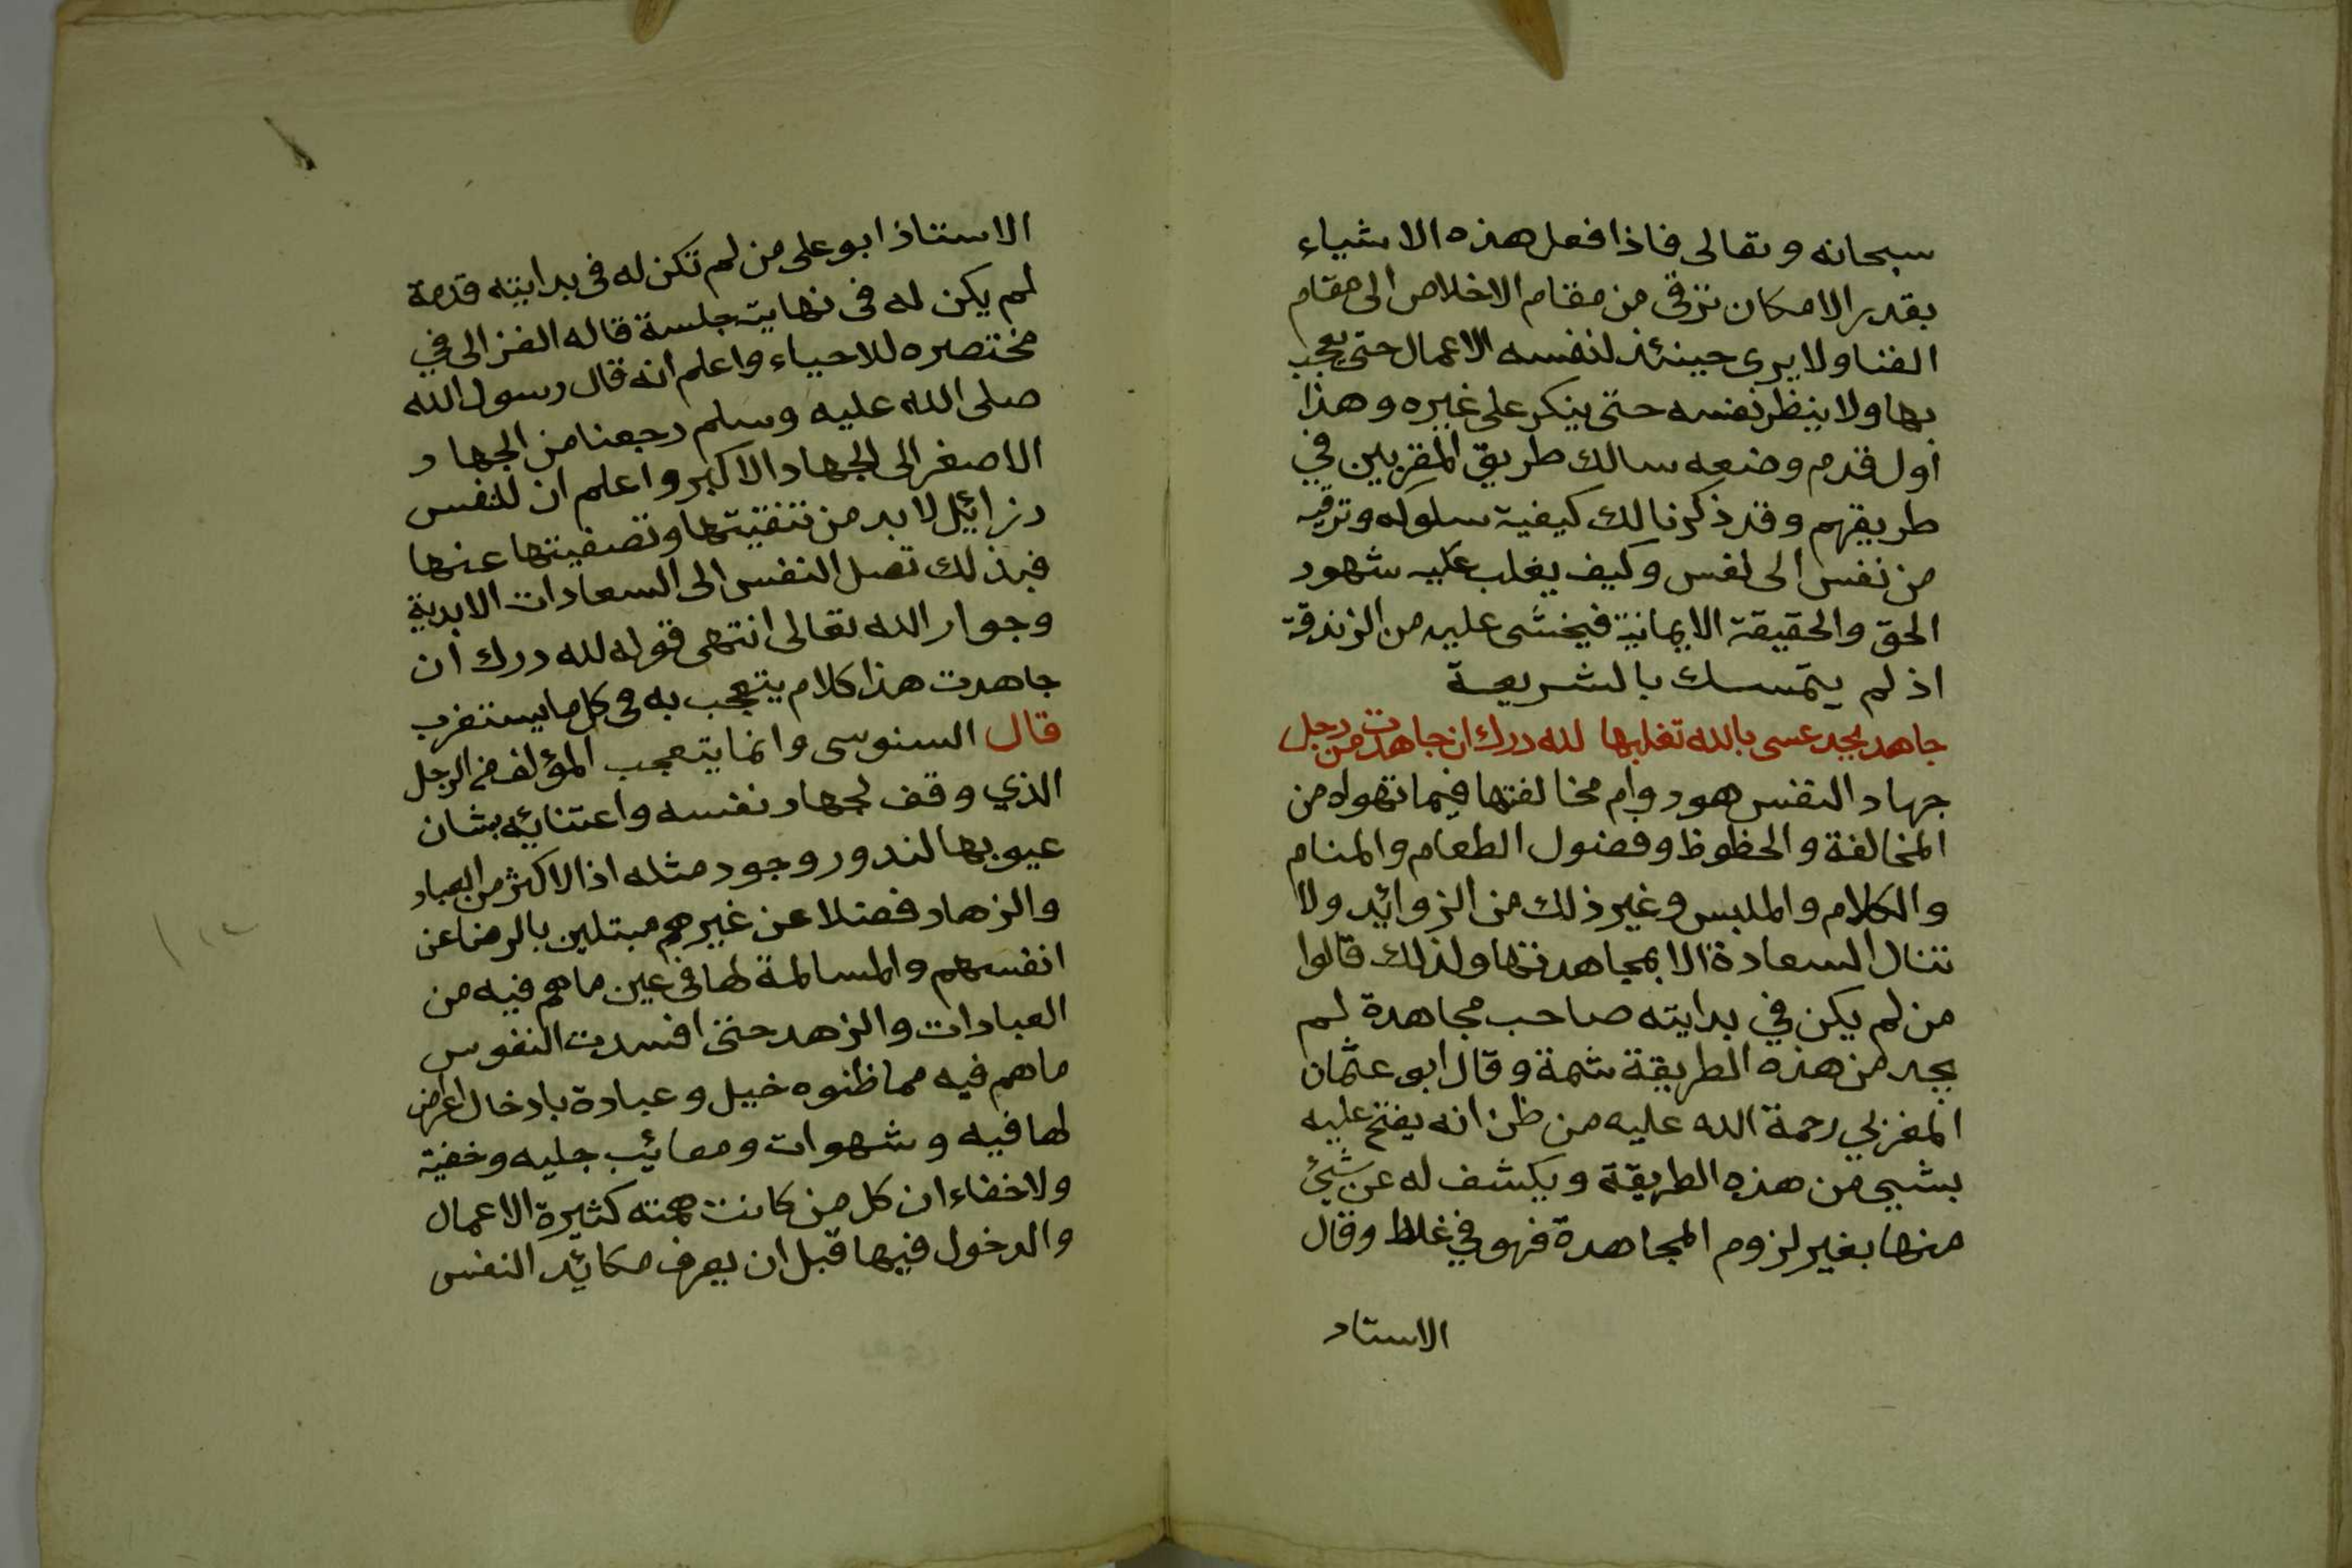 سبحانه وتعالى فاذا فعل هذه الاشياء
بقدر الامكان ترقى من مقام الاخلاص الى مقام
الفنا ولا يرى حينئذ لنفسه الاعمال حتى يعجب
بها ولا ينظر نفسه حتى ينكر على غيره وهذا
اول قدم وضعه سالك طريق المقربين في
طريقهم وقد ذكرنا لك كيفية سلوكه وترقيه
من نفس الى نفس وكيف يغلب عليه شهود
الحق والحقيقة الايمانية فيخشى عليه من الزندقة
اذ لم يتمسك بالشريعة
جاهد بجد عسى بالله تغلبها لله درك ان جاهدت من رجل
جهاد النفس هو دوام مخالفتها فيما تهواه من
المخالفة والحظوظ وفضول الطعام والمنام
والكلام والملبس وغير ذلك من الزوائد ولا
تنال السعادة الا بمجاهدتها ولذلك قالوا
من لم يكن في بدايته صاحب مجاهدة لم
يجد من هذه الطريقة شمة وقال ابو عثمان
المغربي رحمة الله عليه من ظن انه يفتح عليه
بشيى من هذه الطريقة ويكشف له عن شيئ
منها بغير لزوم المجاهدة فهو في غلاط وقال
الاستاد
الاستاذ ابو على من لم تكن له فى بدايته قدمة
لم يكن له فى نهايته جلسة قاله الغزالى في
مختصره للاحياء واعلم انه قال رسول الله
صلى الله عليه وسلم رجعنا من الجهاد
الاصغر الى الجهاد الاكبر واعلم ان للنفس
رزائل لا بد من تنقيتها وتصفيتها عنها
فبذلك تصل النفس الى السعادات الابدية
وجوار الله تعالى انتهى قوله لله درك ان
جاهدت هذا كلام يتعجب به فى كل ما يستغرب
قال السنوسى وانما يتعجب المؤلف من الرجل
الذي وقف لجهاد نفسه واعتنائه بشان
عيوبها لندور وجود مثله اذ الاكثر من العباد
والزهاد فضلا عن غيرهم مبتلين بالرضا عن
انفسهم والمسالمة لها فى عين ما هم فيه من
العبادات والزهد حتى افسدت النفوس
ما هم فيه مما ظنوه خيل وعبادة بادخال اغراض
لها فيه وشهوات ومعائب جليه وخفية
ولا خفاء ان كل من كانت همته كثيرة الاعمال
والدخول فيها قبل ان يعرف مكائد النفس